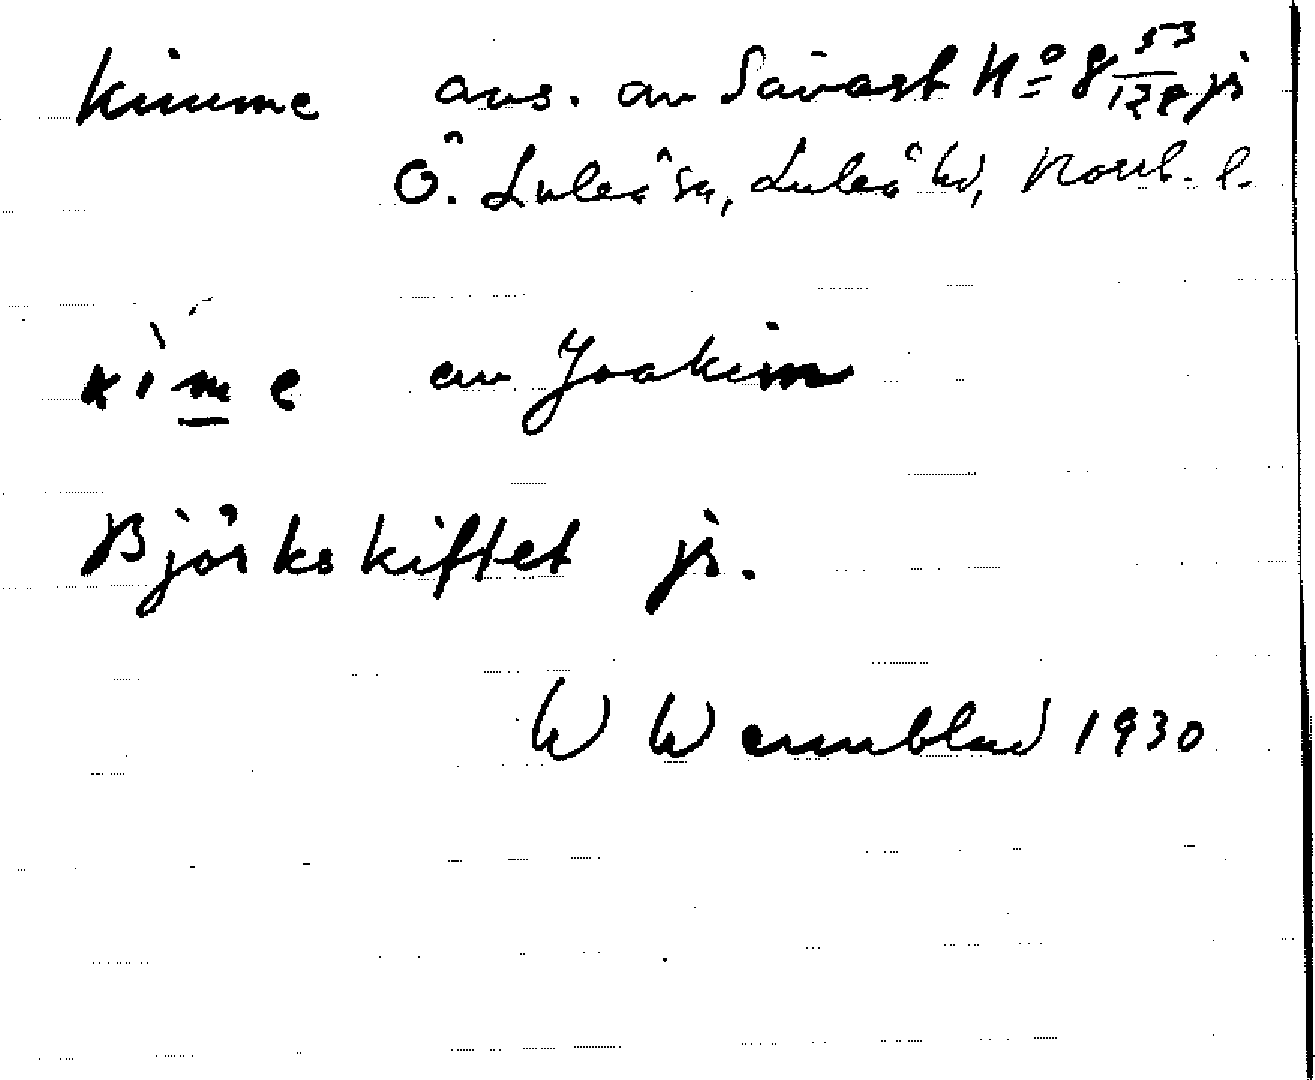 Kimme avs. av Sävast No 8 53/128 js
Ö. Luleå sn, Luleå hd, Norrb. l.
kime av Joakim
Björkskiftet js.
W Wennblad 1930